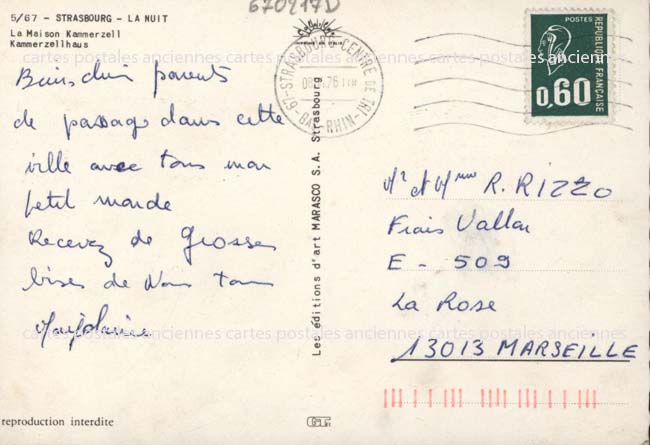 670217D
5/67 - STRASBOURG - LA NUIT
La Maison Kammerzell
Kammerzellhaus
cartes postales anciennes cartes postales anciennes cartes postales anciennes
parents
de passage dans cette
ville avec tous mon
petit monde
Recevez de Grosses
bises de Nous tous
67-STRASBOURG-CENTRE DE TRI
BAS-RHIN
POSTES
REPUBLIQUE FRANÇAISE
0,60
Les éditions d'art MARASCO S.A. Strasbourg
Mr et Mme R. RIZZO
Frais Vallon
E - 509
La Rose
13013 MARSEILLE
cartes postales anciennes cartes postales anciennes cartes postales anciennes
reproduction interdite